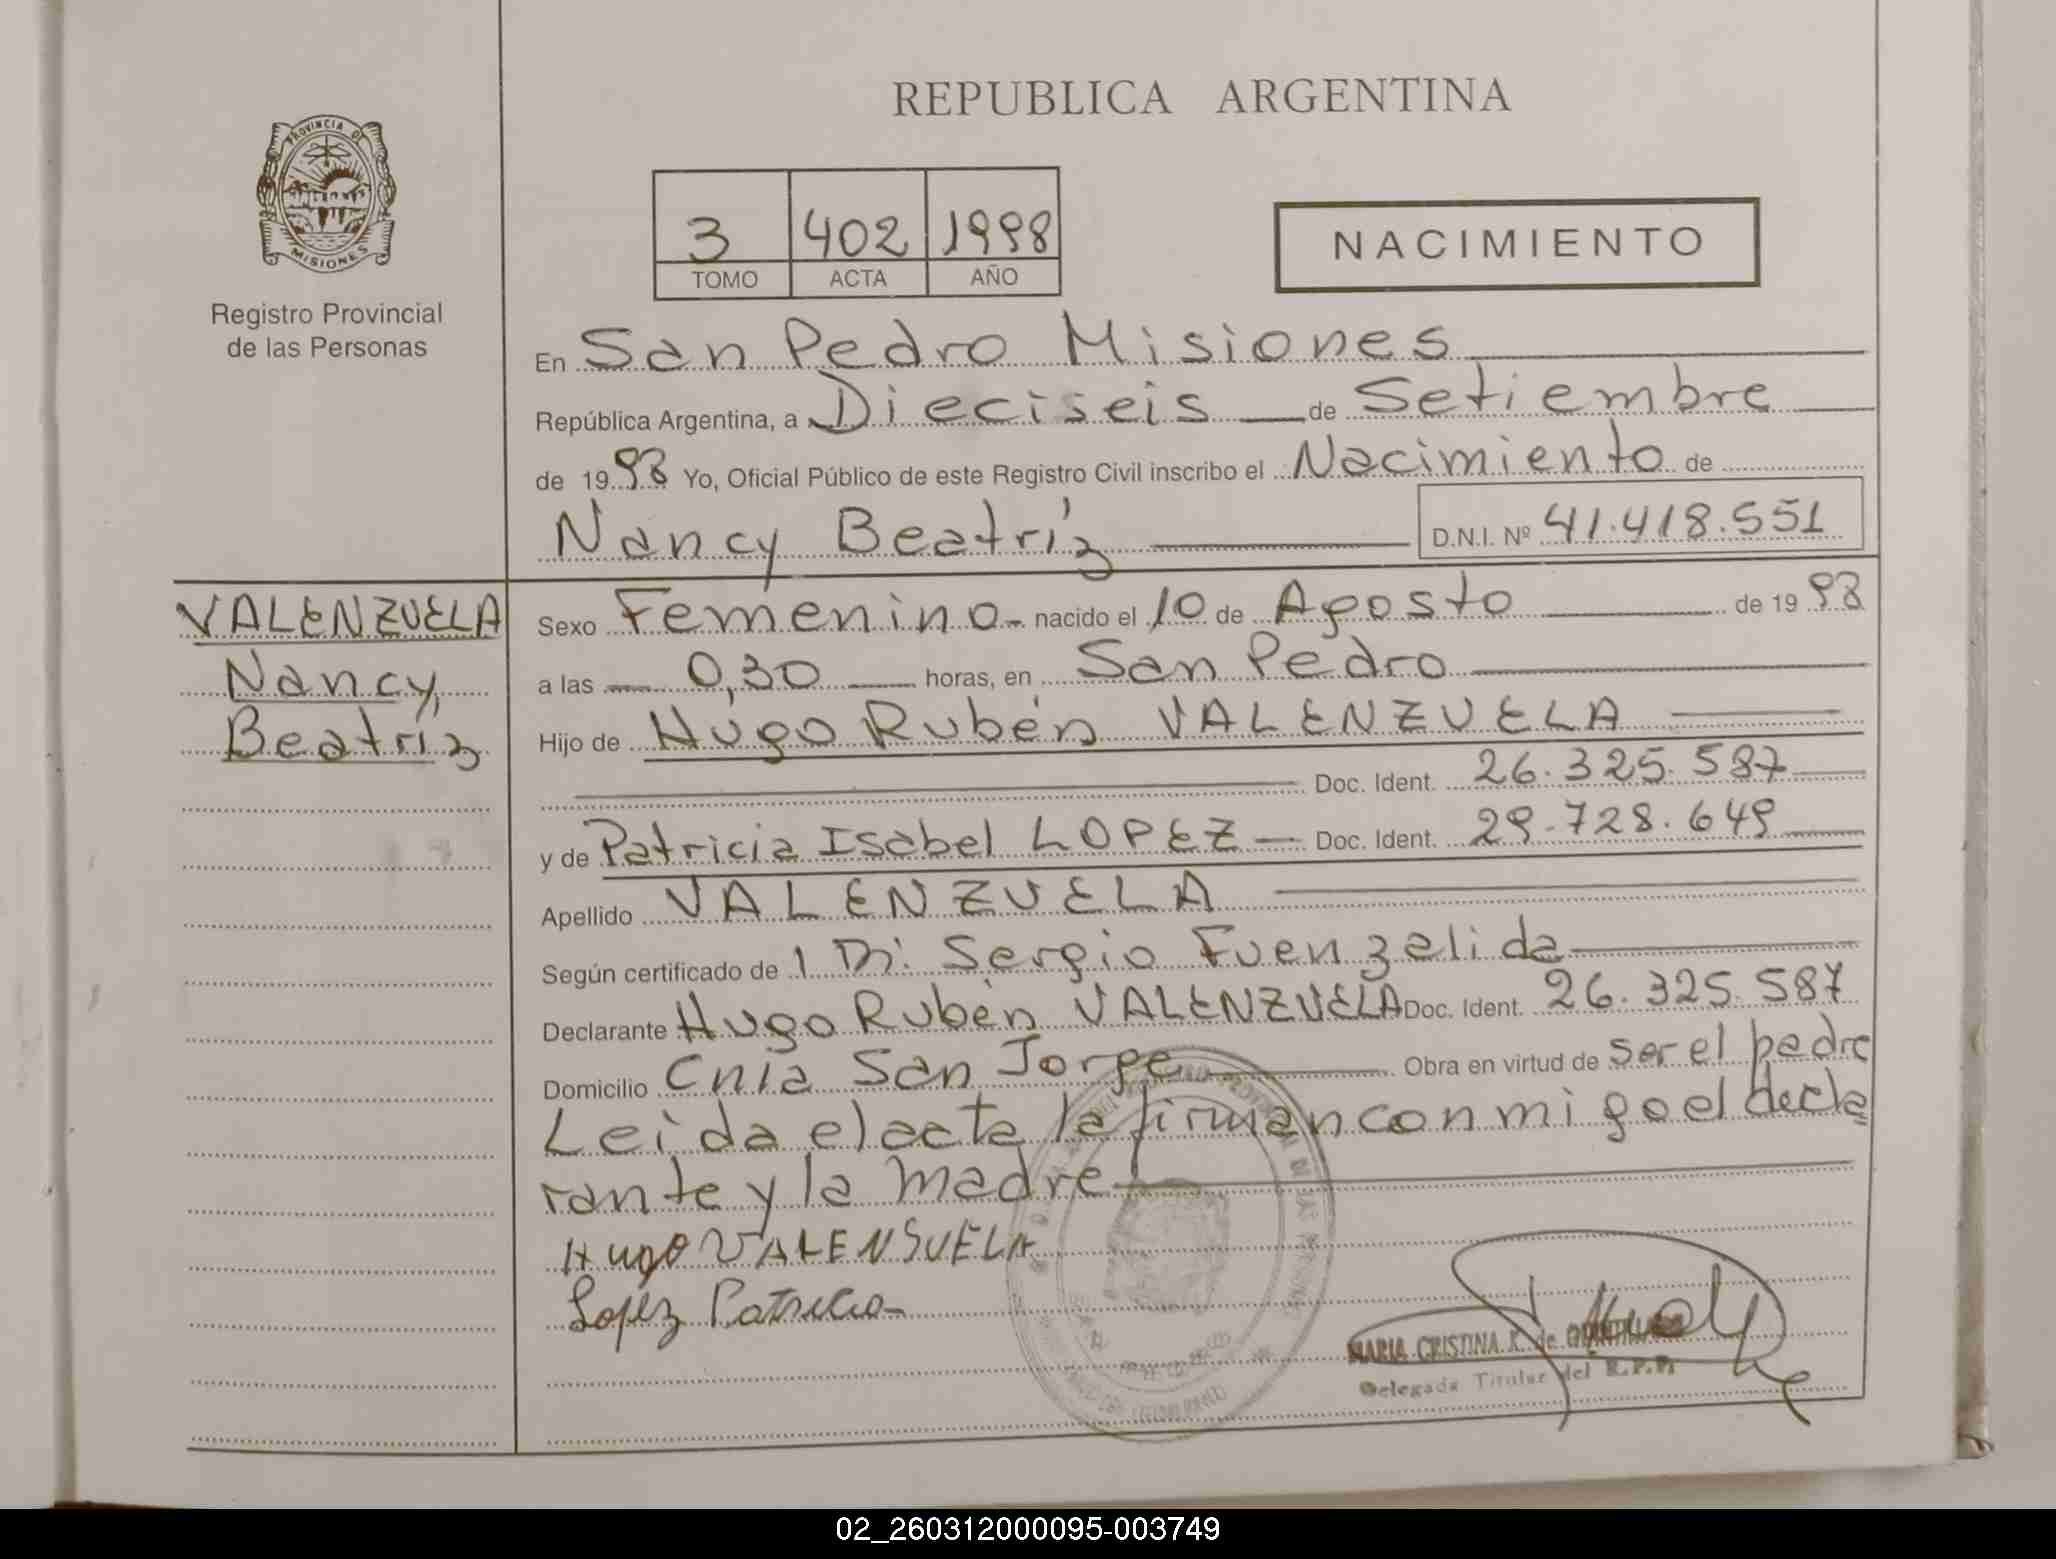 REPUBLICA ARGENTINA
PROVINCIA DE
MISIONES
Registro Provincial
de las Personas
3 402 1998
TOMO ACTA AÑO
NACIMIENTO
En San Pedro Misiones
República Argentina, a Dieciseis de Setiembre
de 1998 Yo, Oficial Público de este Registro Civil inscribo el Nacimiento de
Nancy Beatríz D.N.I. Nº 41.418.551
VALENZUELA
Nancy,
Beatríz
Sexo Femenino- nacido el 10 de Agosto de 1998
a las 0,30 horas, en San Pedro
Hijo de Hugo Rubén VALENZUELA
Doc. Ident. 26.325.587
y de Patricia Isabel LOPEZ Doc. Ident. 29.728.649
Apellido VALENZUELA
Según certificado de Sergio Fuenzalida
Declarante Hugo Rubén VALENZUELA Doc. Ident. 26.325.587
Domicilio Cnia San Jorge Obra en virtud de ser el padre
Leida el acta la firman conmigo el decla
rante y la madre
Hugo VALENSUELA
Lopez Patricia
MARIA CRISTINA K. de
Delegada Titular del R.P.P.
02_260312000095-003749